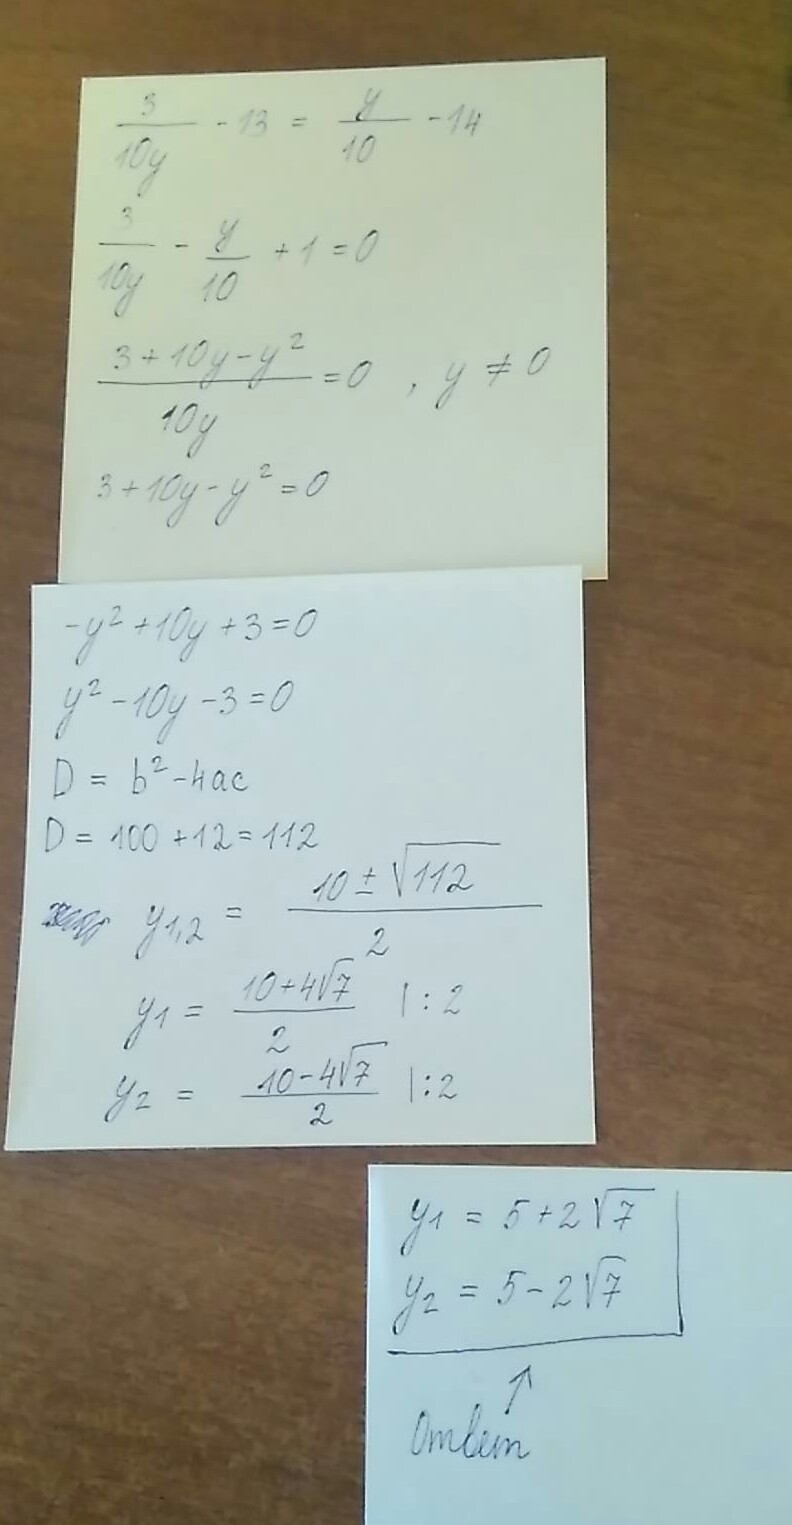 3/10y - 13 = y/10 - 14
3/10y - y/10 + 1 = 0
3 + 10y - y²/10y = 0 , y ≠ 0
3 + 10y - y² = 0
-y² + 10y + 3 = 0
y² - 10y - 3 = 0
D = b² - 4ac
D = 100 + 12 = 112
y1,2 = 10 ± √112/2
y1 = 10 + 4√7/2 | : 2
y2 = 10 - 4√7/2 | : 2
y1 = 5 + 2√7
y2 = 5 - 2√7
↑
Ответ